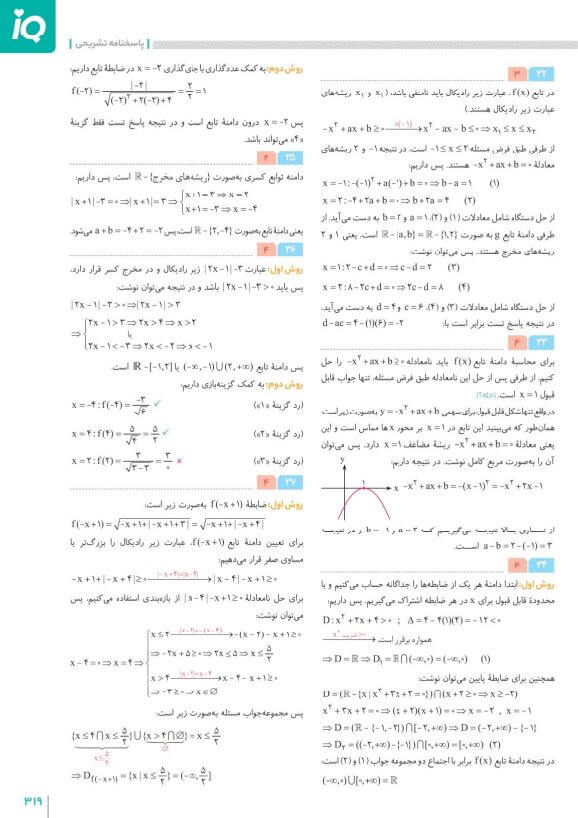 iQ
پاسخنامه تشریحی
۳۲ ۳
در تابع f(x)، عبارت زیر رادیکال باید نامنفی باشد، (x₁ و x₂ ریشه‌های
عبارت زیر رادیکال هستند.)
-x² + ax + b ≥ ۰ ×(-۱) ⟶ x² - ax - b ≤ ۰ ⇒ x₁ ≤ x ≤ x₂
از طرفی طبق فرض مسئله -۱ ≤ x ≤ ۲ است، در نتیجه -۱ و ۲ ریشه‌های
معادلهٔ -x² + ax + b = ۰ هستند. پس داریم:
x = -۱: -(-۱)² + a(-۱) + b = ۰ ⇒ b - a = ۱ (۱)
x = ۲: -۴ + ۲a + b = ۰ ⇒ b + ۲a = ۴ (۲)
از حل دستگاه شامل معادلات (۱) و (۲)، a = ۱ و b = ۲ به دست می‌آید. از
طرفی دامنهٔ تابع g به صورت ℝ - {a, b} = ℝ - {۱, ۲} است، یعنی ۱ و ۲
ریشه‌های مخرج هستند، پس می‌توان نوشت:
x = ۱: ۲ - c + d = ۰ ⇒ c - d = ۲ (۳)
x = ۲: ۸ - ۲c + d = ۰ ⇒ ۲c - d = ۸ (۴)
از حل دستگاه شامل معادلات (۳) و (۴)، c = ۶ و d = ۴ به دست می‌آید،
در نتیجه پاسخ تست برابر است با: d - ac = ۴ - (۱)(۶) = -۲
۳۳ ۴
برای محاسبهٔ دامنهٔ تابع f(x) باید نامعادلهٔ -x² + ax + b ≥ ۰ را حل
کنیم. از طرفی پس از حل این نامعادله طبق فرض مسئله، تنها جواب قابل
قبول x = ۱ است.
در واقع تنها شکل قابل قبول برای سهمی y = -x² + ax + b به‌صورت زیر است:
همان‌طور که می‌بینید این تابع در x = ۱ بر محور xها مماس است و این
یعنی معادلهٔ -x² + ax + b = ۰ ریشهٔ مضاعف x = ۱ دارد. پس می‌توان
آن را به‌صورت مربع کامل نوشت. در نتیجه داریم:
y
۱
x
-x² + ax + b = -(x - ۱)² = -x² + ۲x - ۱
از تساوی بالا نتیجه می‌گیریم که a = ۲ و b = -۱ و در نتیجه
a - b = ۲ - (-۱) = ۳ است.
۳۴ ۴
روش اول: ابتدا دامنهٔ هر یک از ضابطه‌ها را جداگانه حساب می‌کنیم و با
محدودهٔ قابل قبول برای x در هر ضابطه اشتراک می‌گیریم. پس داریم:
D: x² + ۲x + ۴ > ۰ ; Δ = ۴ - ۴(۱)(۴) = -۱۲ < ۰
ضریب x² > ۰ ⟶ همواره برقرار است.
⇒ D = ℝ ⇒ D₁ = ℝ ∩ (-∞, ۰) = (-∞, ۰) (۱)
همچنین برای ضابطهٔ پایین می‌توان نوشت:
D = (ℝ - {x | x² + ۳x + ۲ = ۰}) ∩ (x + ۲ ≥ ۰ ⇒ x ≥ -۲)
x² + ۳x + ۲ = ۰ ⇒ (x + ۲)(x + ۱) = ۰ ⇒ x = -۲ , x = -۱
⇒ D = (ℝ - {-۱, -۲}) ∩ [-۲, +∞) ⇒ D = (-۲, +∞) - {-۱}
⇒ D₂ = ((-۲, +∞) - {-۱}) ∩ [۰, +∞) = [۰, +∞) (۲)
در نتیجه دامنهٔ تابع f(x) برابر با اجتماع دو مجموعه جواب (۱) و (۲) است:
(-∞, ۰) ∪ [۰, +∞) = ℝ
روش دوم: به کمک عددگذاری با جای‌گذاری x = -۲ در ضابطهٔ تابع داریم:
f(-۲) = |-۲| / √((-۲)² + ۲(-۲) + ۴) = ۲/۲ = ۱
پس x = -۲ درون دامنهٔ تابع است و در نتیجه پاسخ تست فقط گزینهٔ
«۴» می‌تواند باشد.
۳۵ ۲
دامنه توابع کسری به‌صورت {ریشه‌های مخرج} - ℝ است، پس داریم:
|x + ۱| - ۳ = ۰ ⇒ |x + ۱| = ۳ ⇒ { x + ۱ = ۳ ⇒ x = ۲
x + ۱ = -۳ ⇒ x = -۴
یعنی دامنهٔ تابع به‌صورت ℝ - {۲, -۴} است، پس a + b = -۴ + ۲ = -۲ می‌شود.
۳۶ ۴
روش اول: عبارت |۲x - ۱| - ۳ زیر رادیکال و در مخرج کسر قرار دارد،
پس باید |۲x - ۱| - ۳ > ۰ باشد و در نتیجه می‌توان نوشت:
|۲x - ۱| - ۳ > ۰ ⇒ |۲x - ۱| > ۳
⇒ { ۲x - ۱ > ۳ ⇒ ۲x > ۴ ⇒ x > ۲
یا
۲x - ۱ < -۳ ⇒ ۲x < -۲ ⇒ x < -۱
پس دامنهٔ تابع (-∞, -۱) ∪ (۲, +∞) یا ℝ - [-۱, ۲] است.
روش دوم: به کمک گزینه‌بازی داریم:
x = -۴: f(-۴) = -۳/√۶ ✓ (رد گزینهٔ «۱»)
x = ۴: f(۴) = ۵/√۴ = ۵/۲ ✓ (رد گزینهٔ «۲»)
x = ۲: f(۲) = ۳/√(۳ - ۳) = ۳/۰ × (رد گزینهٔ «۳»)
۳۷ ۴
روش اول: ضابطهٔ f(-x + ۱) به‌صورت زیر است:
f(-x + ۱) = √(-x + ۱ + |-x + ۱ + ۳|) = √(-x + ۱ + |-x + ۴|)
برای تعیین دامنهٔ تابع f(-x + ۱)، عبارت زیر رادیکال را بزرگ‌تر یا
مساوی صفر قرار می‌دهیم:
-x + ۱ + |-x + ۴| ≥ ۰ |-x + ۴| = |x - ۴| ⟶ |x - ۴| - x + ۱ ≥ ۰
برای حل نامعادلهٔ |x - ۴| - x + ۱ ≥ ۰ از بازه‌بندی استفاده می‌کنیم، پس
می‌توان نوشت:
x - ۴ = ۰ ⇒ x = ۴ ⇒ { x ≤ ۴ |x - ۴| = -(x - ۴) ⟶ -(x - ۴) - x + ۱ ≥ ۰
⇒ -۲x + ۵ ≥ ۰ ⇒ ۲x ≤ ۵ ⇒ x ≤ ۵/۲
x > ۴ |x - ۴| = x - ۴ ⟶ x - ۴ - x + ۱ ≥ ۰
⇒ -۳ ≥ ۰ ⇒ x ∈ ∅
پس مجموعه‌جواب مسئله به‌صورت زیر است:
{x ≤ ۴ ∩ x ≤ ۵/۲} ∪ {x > ۴ ∩ ∅} = x ≤ ۵/۲
x ≤ ۵/۲ ∅
⇒ D f(-x+۱) = {x | x ≤ ۵/۲} = (-∞, ۵/۲]
۳۱۹